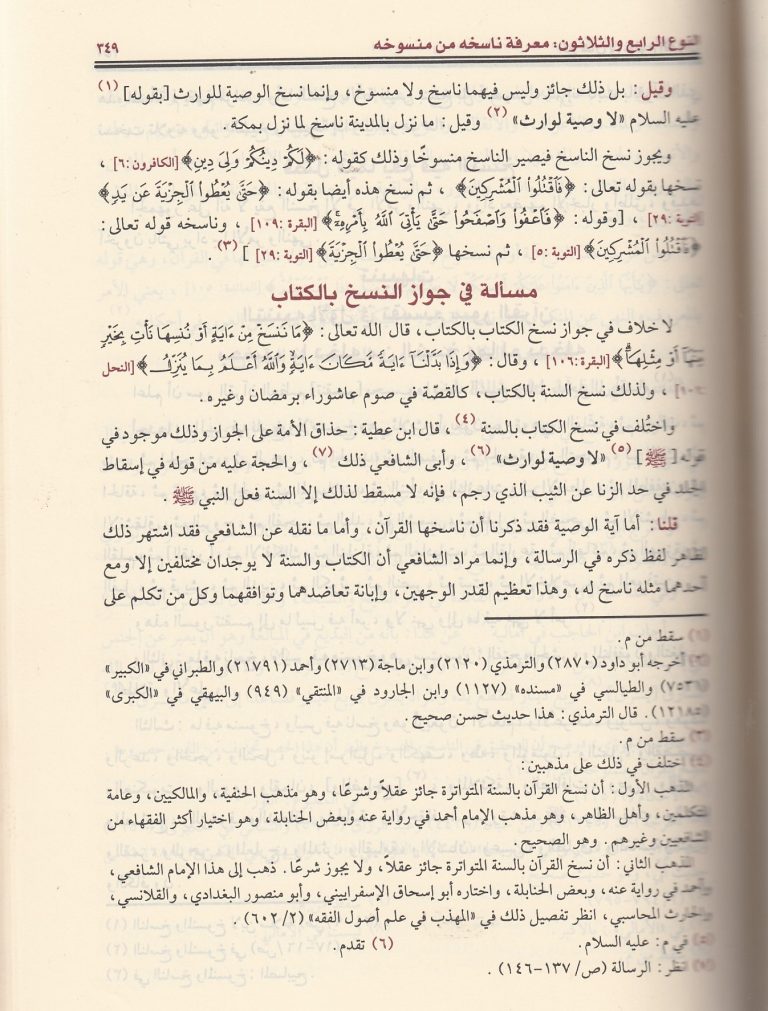 النوع الرابع والثلاثون: معرفة ناسخه من منسوخه ٣٤٩
وقيل: بل ذلك جائز وليس فيهما ناسخ ولا منسوخ، وإنما نسخ الوصية للوارث [بقوله] (١)
عليه السلام «لا وصية لوارث» (٢) وقيل: ما نزل بالمدينة ناسخ لما نزل بمكة.
ويجوز نسخ الناسخ فيصير الناسخ منسوخًا وذلك كقوله: ﴿لَكُمْ دِينُكُمْ وَلِىَ دِينِ﴾ [الكافرون: ٦]،
نسخها بقوله تعالى: ﴿فَٱقْتُلُوا۟ ٱلْمُشْرِكِينَ﴾، ثم نسخ هذه أيضا بقوله: ﴿حَتَّىٰ يُعْطُوا۟ ٱلْجِزْيَةَ عَن يَدٍ﴾
[التوبة: ٢٩]، [وقوله: ﴿فَٱعْفُوا۟ وَٱصْفَحُوا۟ حَتَّىٰ يَأْتِىَ ٱللَّهُ بِأَمْرِهِۦٓ﴾ [البقرة: ١٠٩]، وناسخه قوله تعالى:
﴿فَٱقْتُلُوا۟ ٱلْمُشْرِكِينَ﴾ [التوبة: ٥]، ثم نسخها ﴿حَتَّىٰ يُعْطُوا۟ ٱلْجِزْيَةَ﴾ [التوبة: ٢٩] ] (٣).
مسألة في جواز النسخ بالكتاب
لا خلاف في جواز نسخ الكتاب بالكتاب، قال الله تعالى: ﴿مَا نَنسَخْ مِنْ ءَايَةٍ أَوْ نُنسِهَا نَأْتِ بِخَيْرٍ
مِّنْهَآ أَوْ مِثْلِهَآ﴾ [البقرة: ١٠٦]، وقال: ﴿وَإِذَا بَدَّلْنَآ ءَايَةً مَّكَانَ ءَايَةٍ وَٱللَّهُ أَعْلَمُ بِمَا يُنَزِّلُ﴾ [النحل
: ١٠١]، ولذلك نسخ السنة بالكتاب، كالقصّة في صوم عاشوراء برمضان وغيره.
واختُلف في نسخ الكتاب بالسنة (٤)، قال ابن عطية: حذاق الأمة على الجواز وذلك موجود في
قوله [ﷺ] (٥) «لا وصية لوارث» (٦)، وأبى الشافعي ذلك (٧)، والحجة عليه من قوله في إسقاط
الجلد في حد الزنا عن الثيب الذي رجم، فإنه لا مسقط لذلك إلا السنة فعل النبي ﷺ.
قلنا: أما آية الوصية فقد ذكرنا أن ناسخها القرآن، وأما ما نقله عن الشافعي فقد اشتهر ذلك
لظاهر لفظ ذكره في الرسالة، وإنما مراد الشافعي أن الكتاب والسنة لا يوجدان مختلفين إلا ومع
أحدهما مثله ناسخ له، وهذا تعظيم لقدر الوجهين، وإبانة تعاضدهما وتوافقهما وكل من تكلم على
(١) سقط من م.
(٢) أخرجه أبو داود (٢٨٧٠) والترمذي (٢١٢٠) وابن ماجة (٢٧١٣) وأحمد (٢١٧٩١) والطبراني في «الكبير»
والطيالسي في «مسنده» (١١٢٧) وابن الجارود في «المنتقي» (٩٤٩) والبيهقي في «الكبرى»
(١٢١٨٥). قال الترمذي: هذا حديث حسن صحيح.
(٣) سقط من م.
(٤) اختلف في ذلك على مذهبين:
المذهب الأول: أن نسخ القرآن بالسنة المتواترة جائز عقلاً وشرعًا، وهو مذهب الحنفية، والمالكيين، وعامة
المتكلمين، وأهل الظاهر، وهو مذهب الإمام أحمد في رواية عنه وبعض الحنابلة، وهو اختيار أكثر الفقهاء من
الشافعيين وغيرهم. وهو الصحيح.
المذهب الثاني: أن نسخ القرآن بالسنة المتواترة جائز عقلاً، ولا يجوز شرعًا. ذهب إلى هذا الإمام الشافعي،
وأحمد في رواية عنه، وبعض الحنابلة، واختاره أبو إسحاق الإسفراييني، وأبو منصور البغدادي، والقلانسي،
والحارث المحاسبي، انظر تفصيل ذلك في «المهذب في علم أصول الفقه» (٢/ ٦٠٢).
(٥) في م: عليه السلام. (٦) تقدم.
(٧) انظر: الرسالة (ص/ ١٣٧-١٤٦).